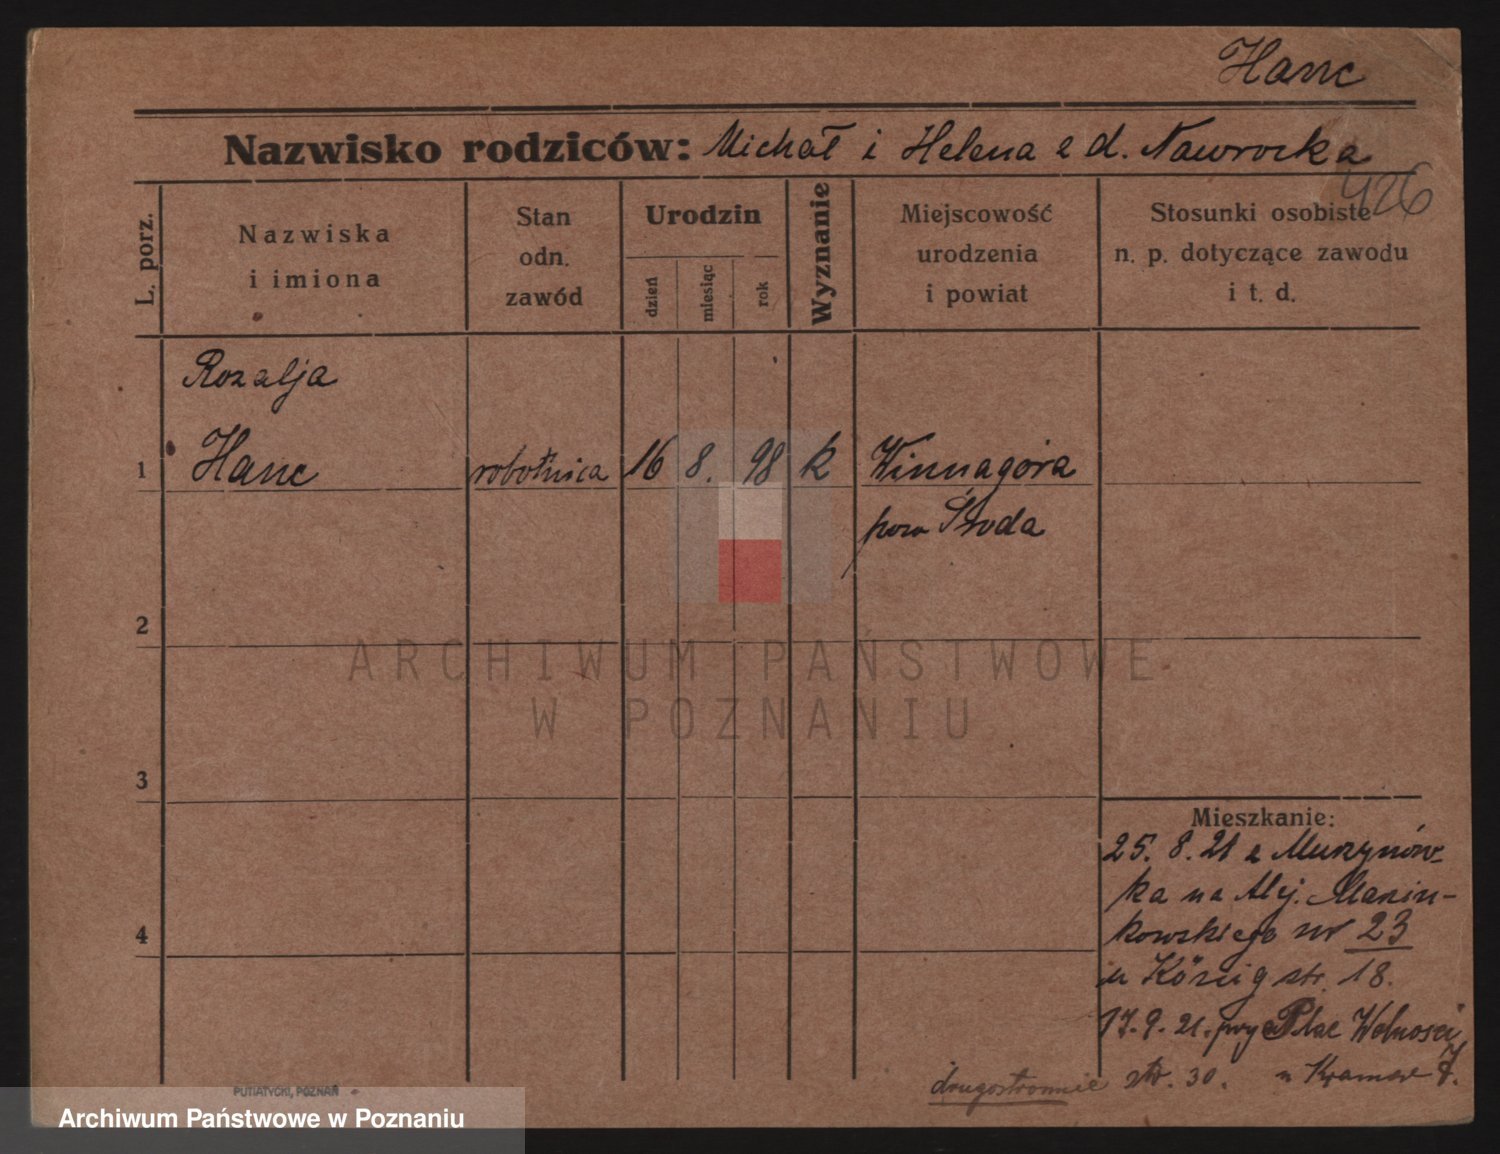 Hanc
Nazwisko rodziców: Michał i Helena z d. Nawrocka
426
L. porz.
Nazwiska
i imiona
Stan
odn.
zawód
Urodzin
dzień
miesiąc
rok
Wyznanie
Miejscowość
urodzenia
i powiat
Stosunki osobiste
n. p. dotyczące zawodu
i t. d.
Rozalja
1 Hanc robotnica 16 8. 98 k Winnagóra
pow Środa
2
3
4
Mieszkanie:
25. 8. 21 z Murzynów-
ka na Alej. Marcin-
kowskiego nr 23
u str. 18.
17.9.21. Plac Wolności 7.
drugostronnie str. 30. u
PUTIATYCKI, POZNAŃ
ARCHIWUM PAŃSTWOWE
W POZNANIU
Archiwum Państwowe w Poznaniu